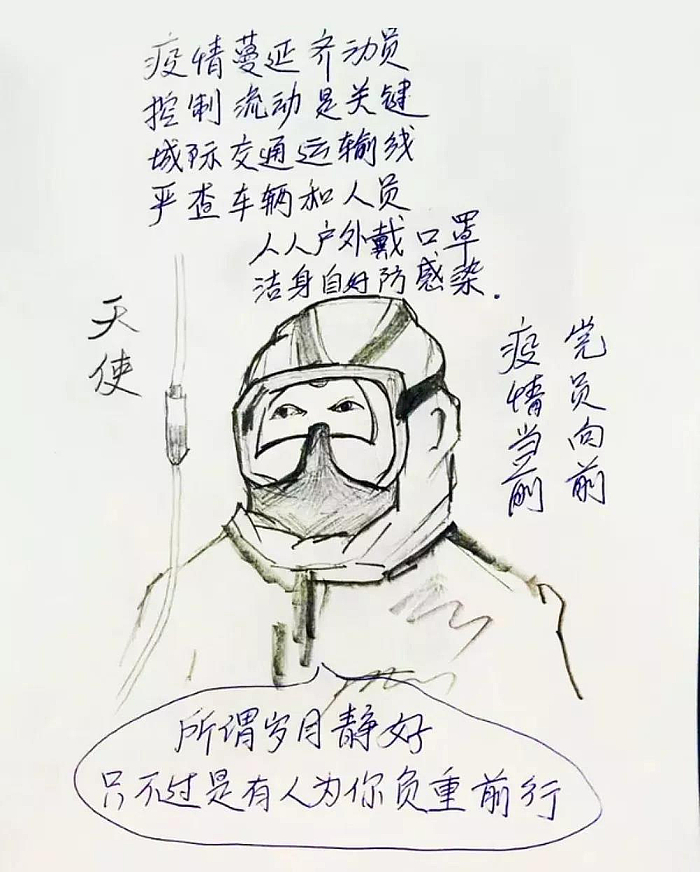 疫情蔓延齐动员
控制流动是关键
城际交通运输线
严查车辆和人员
人人户外戴口罩
洁身自好防感染.
天使
疫情当前
党员向前
所谓岁月静好
只不过是有人为你负重前行